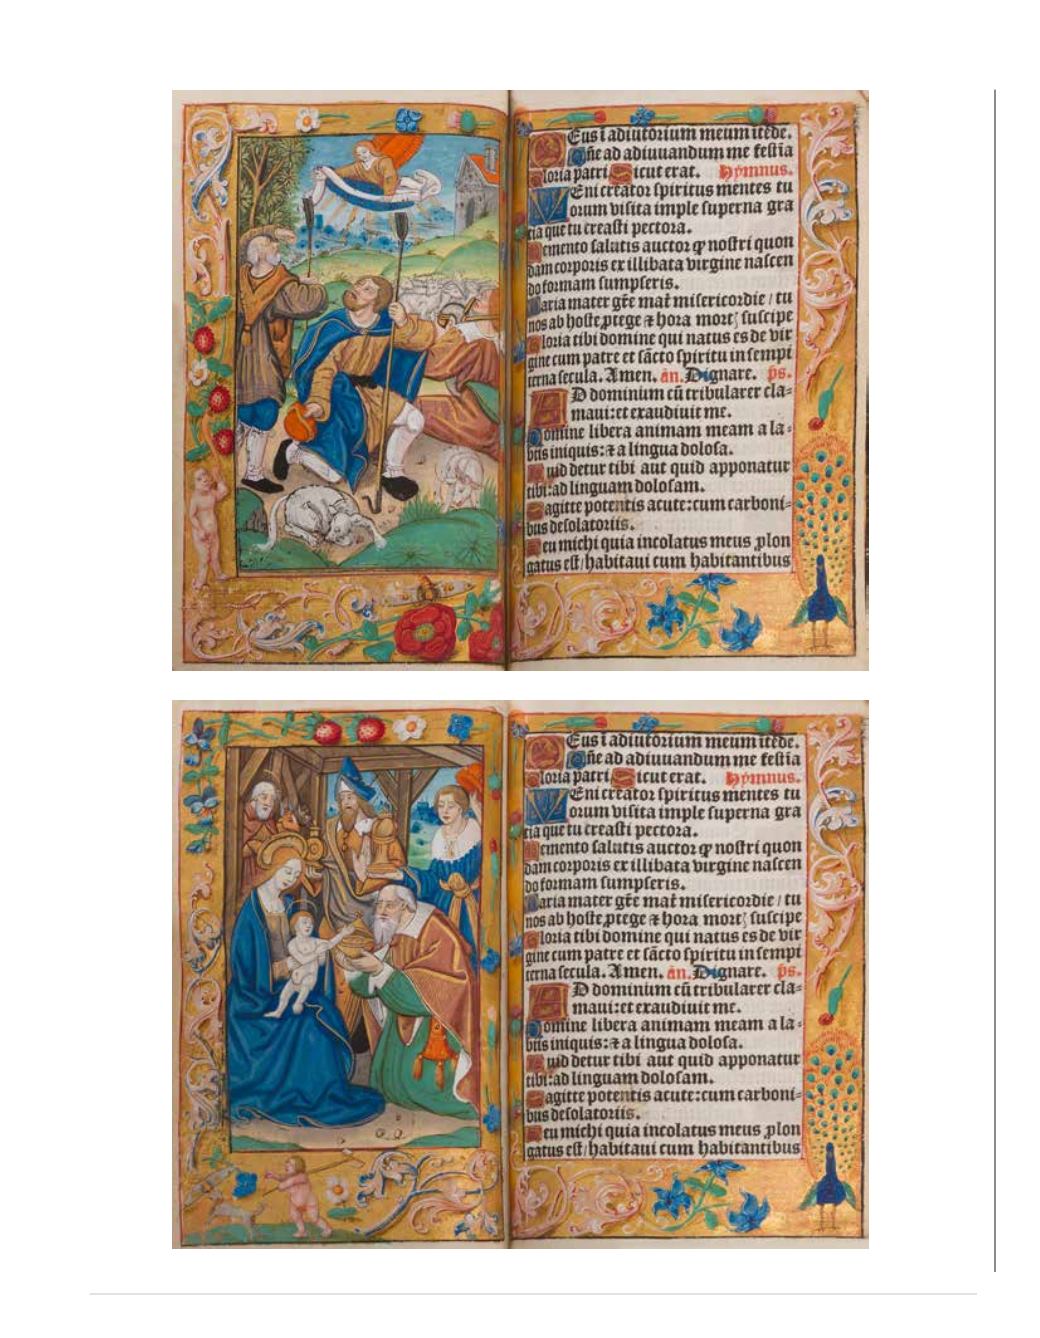 Eus ī adiutorium meum itēde.
Dñe ad adiuuandum me festīa
Gloria patri Sicut erat. Hýmnus.
VEni creator spiritus mentes tu
orum visita imple superna gra
cia que tu creasti pectora.
Memento salutis auctor ꝙ nostri quon
dam corporis ex illibata virgine nascen
do formam sumpseris.
Maria mater gr̄e mat̄ misericordie / tu
nos ab hoste ꝓtege ⁊ hora mortꝫ suscipe
Gloria tibi domine qui natus es de vir
gine cum patre et sācto spiritu in sempi
terna secula. Amen. an. Dignare. ps.
AD dominum cū tribularer cla⸗
maui: et exaudiuit me.
Domine libera animam meam a la⸗
biis iniquis: ⁊ a lingua dolosa.
Quid detur tibi aut quid apponatur
tibi: ad linguam dolosam.
Sagitte potentis acute: cum carboni⸗
bus desolatoriis.
Heu michi quia incolatus meus ꝓlon
gatus est / habitaui cum habitantibus
Eus ī adiutorium meum itēde.
Dñe ad adiuuandum me festīa
Gloria patri Sicut erat. Hýmnus.
VEni creator spiritus mentes tu
orum visita imple superna gra
cia que tu creasti pectora.
Memento salutis auctor ꝙ nostri quon
dam corporis ex illibata virgine nascen
do formam sumpseris.
Maria mater gr̄e mat̄ misericordie / tu
nos ab hoste ꝓtege ⁊ hora mortꝫ suscipe
Gloria tibi domine qui natus es de vir
gine cum patre et sācto spiritu in sempi
terna secula. Amen. an. Dignare. ps.
AD dominum cū tribularer cla⸗
maui: et exaudiuit me.
Domine libera animam meam a la⸗
biis iniquis: ⁊ a lingua dolosa.
Quid detur tibi aut quid apponatur
tibi: ad linguam dolosam.
Sagitte potentis acute: cum carboni⸗
bus desolatoriis.
Heu michi quia incolatus meus ꝓlon
gatus est / habitaui cum habitantibus